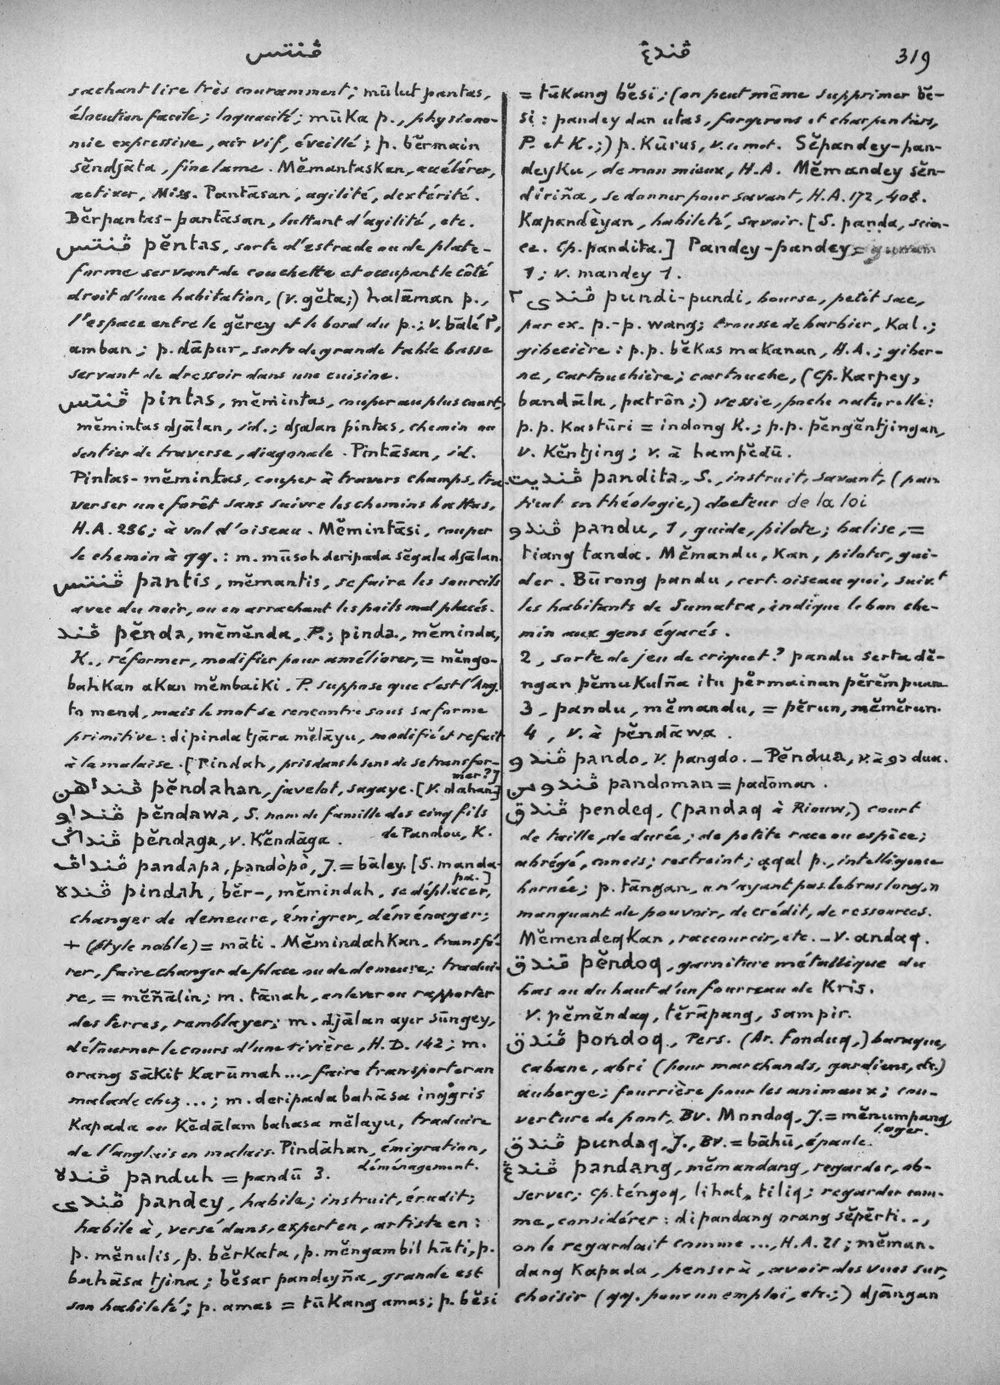 ڤنتس ڤندڠ 319
sachant lire très couramment; mūlut pantas,
élocution facile; loquacité; mūka p., physiono-
mie expressive, air vif, éveillé; p. bĕrmain
sĕndjāta, fine lame. Mĕmantaskan, accélérer,
activer, Miss. Pantāsan, agilité, dextérité.
Bĕrpantas-pantāsan, luttant d'agilité, etc.
ڤنتس pĕntas, sorte d'estrade ou de plate-
forme servant de couchette et occupant le côté
droit d'une habitation, (v. gĕta;) halāman p.,
l'espace entre le gĕrey et le bord du p.; v. bālé ٢,
amban; p. dāpur, sorte de grande table basse
servant de dressoir dans une cuisine.
ڤنتس pintas, mĕmintas, couper au plus court,
mĕmintas djālan, id.; djalan pintas, chemin ou
sentier de traverse, diagonale. Pintāsan, id.
Pintas-mĕmintas, couper à travers champs, tra
verser une forêt sans suivre les chemins battus,
H.A. 286; à vol d'oiseau. Mĕmintāsi, couper
le chemin à qq.: m. mūsoh deripada sĕgala djālan.
ڤنتس pantis, mĕmantis, se faire les sourcils
avec du noir, ou en arrachant les poils mal placés.
ڤند pĕnda, mĕmĕnda, P.; pinda, mĕminda,
K., réformer, modifier pour améliorer, = mĕngo-
bahkan akan mĕmbaiki. P. suppose que c'est l'Ang.
to mend, mais le mot se rencontre sous sa forme
primitive: dipinda tjāra mĕlāyu, modifié et refait
à la malaise. [Pindah, pris dans le sens de se transfor-
mer?]
ڤنداهن pĕndahan, javelot, sagaye. [V. dahan]
ڤنداو pĕndawa, S. nom de famille des cinq fils
de Pandou, K.
ڤنداݢ pĕndaga, v. Kĕndāga.
ڤنداڤ pandapa, pandòpò, J. = bāley. [S. manda-
pa.]
ڤنده pindah, bĕr-, mĕmindah, se déplacer,
changer de demeure, émigrer, déménager;
+ (style noble) = māti. Mĕmindahkan, transfé-
rer, faire changer de place ou de demeure; tradui-
re, = mĕñālin; m. tānah, enlever ou rapporter
des terres, remblayer; m. djālan ayer sūngey,
détourner le cours d'une rivière, H.D. 142; m.
orang sākit Karūmah ..., faire transporter un
malade chez ...; m. deripada bahāsa inggris
Kapada ou Kĕdālam bahasa mĕlayu, traduire
de l'anglais en malais. Pindāhan, émigration,
déménagement.
ڤنده panduh = pandū 3.
ڤندى pandey, habile; instruit, érudit;
habile à, versé dans, expert en, artiste en:
p. mĕnulis, p. bĕrkata, p. mĕngambil hāti, p.
bahāsa tjina; bĕsar pandeyña, grande est
son habileté; p. amas = tūkang amas; p. bĕsi
= tūkang bĕsi; (on peut même supprimer bĕ-
si: pandey dan utas, forgerons et charpentiers,
P. et K.;) p. Kūrus, v. ce mot. Sĕpandey-pan-
deyku, de mon mieux, H.A. Mĕmandey sĕn-
diriña, se donner pour savant, H.A. 172, 408.
Kapandèyan, habileté, savoir. [S. paṇḍa, scien-
ce. Cp. pandita.] Pandey-pandey =
1; v. mandey 1.
ڤندى ٢ pundi-pundi, bourse, petit sac,
par ex. p.-p. wang; trousse de barbier, Kal.;
gibecière: p.p. bĕkas makanan, H.A.; giber-
ne, cartouchière; cartouche, (Cp. Karpey,
bandāla, patrōn;) vessie, poche naturelle:
p.p. Kastūri = indong K.; p.p. pĕngĕntjingan,
v. Kĕntjing; v. à hampĕdū.
ڤنديت pandita, S., instruit, savant, (par-
tict en théologie,) docteur de la loi
ڤندو pandu, 1, guide, pilote; balise, =
tiang tanda. Mĕmandu, Kan, piloter, gui-
der. Būrong pandu, cert. oiseau qui, suivt
les habitants de Sumatra, indique le bon che-
min aux gens égarés.
2, sorte de jeu de criquet? pandu serta dĕ-
ngan pĕmukulña itu pĕrmainan pĕrĕmpuan
3, pandu, mĕmandu, = pĕrun, mĕmĕrun.
4, v. à pĕndāwa.
ڤندو pando, v. pangdo. — Pĕndua, v. à دو dua.
ڤندومن pandoman = padōman.
ڤندق pendeq, (pandaq à Riouw,) court
de taille, de durée; de petite race ou espèce;
abrégé, concis; restreint; aqal p., intelligence
bornée; p. tāngan, « n'ayant pas le bras long, »
manquant de pouvoir, de crédit, de ressources.
Mĕmendeqkan, raccourcir, etc. — V. andaq.
ڤندق pĕndoq, garniture métallique du
bas ou du haut d'un fourreau de Kris.
V. pĕmĕndaq, tĕrāpang, sampir.
ڤندق pondoq, Pers. (Ar. fonduq,) baraque,
cabane, abri (pour marchands, gardiens, etc.)
auberge; fourrière pour les animaux; cou-
verture de pont, Bv. Mondoq, J. = mĕnumpang,
loger.
ڤندق pundaq, J., Bv. = bāhū, épaule.
ڤندڠ pandang, mĕmandang, regarder, ob-
server; cp. téngoq, lihat, tiliq; regarder com-
me, considérer: dipandang orang sĕpĕrti ..,
on le regardait comme ..., H.A. 21; mĕman-
dang Kapada, penser à, avoir des vues sur,
choisir (qq. pour un emploi, etc.;) djāngan